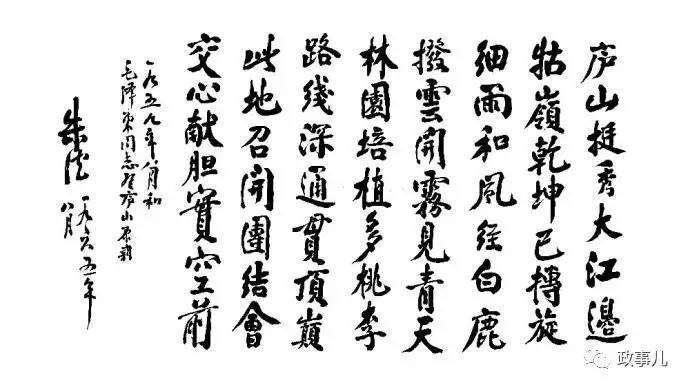 庐山挺秀大江邊
牯嶺乾坤已轉旋
細雨和風經白鹿
撥雲開霧見青天
林園培植多桃李
路綫深通貫頂巔
此地召開團結會
交心献胆實空前
一九五九年八月和
毛泽东同志登庐山原韵
朱德
一九六五年
八月
政事儿